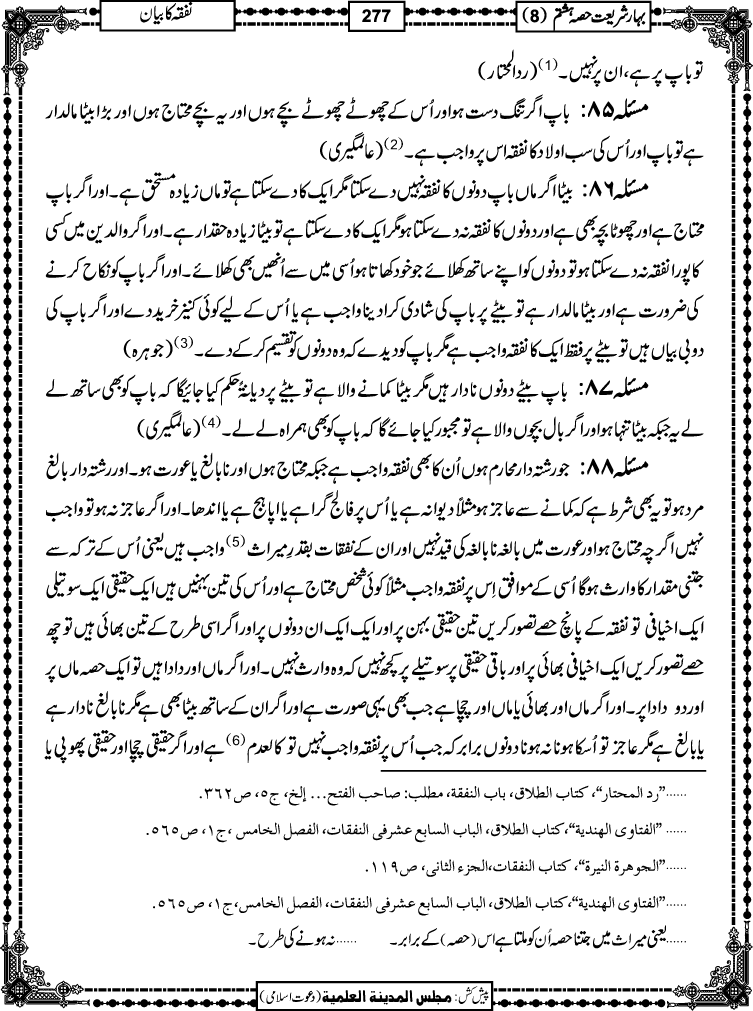 بہار شریعت حصہ ہشتم (8)
277
نفقہ کا بیان
تو باپ پر ہے، ان پر نہیں۔(1) (ردالمحتار)
مسئلہ ۸۵: باپ اگر تنگ دست ہو اور اُس کے چھوٹے چھوٹے بچے ہوں اور یہ بچے محتاج ہوں اور بڑا بیٹا مالدار
ہے تو باپ اور اُس کی سب اولاد کا نفقہ اس پر واجب ہے۔(2) (عالمگیری)
مسئلہ ۸۶: بیٹا اگر ماں باپ دونوں کا نفقہ نہیں دے سکتا مگر ایک کا دے سکتا ہے تو ماں زیادہ مستحق ہے۔ اور اگر باپ
محتاج ہے اور چھوٹا بچہ بھی ہے اور دونوں کا نفقہ نہ دے سکتا ہو مگر ایک کا دے سکتا ہے تو بیٹا زیادہ حقدار ہے۔ اور اگر والدین میں کسی
کا پورا نفقہ نہ دے سکتا ہو تو دونوں کو اپنے ساتھ کھلائے جو خود کھاتا ہو اُسی میں سے اُنھیں بھی کھلائے۔ اور اگر باپ کو نکاح کرنے
کی ضرورت ہے اور بیٹا مالدار ہے تو بیٹے پر باپ کی شادی کرا دینا واجب ہے یا اُس کے لیے کوئی کنیز خرید دے اور اگر باپ کی
دو بی بیاں ہیں تو بیٹے پر فقط ایک کا نفقہ واجب ہے مگر باپ کو دیدے کہ وہ دونوں کو تقسیم کر کے دے۔(3) (جوہرہ)
مسئلہ ۸۷: باپ بیٹے دونوں نادار ہیں مگر بیٹا کمانے والا ہے تو بیٹے پر دیانۃً حکم کیا جائیگا کہ باپ کو بھی ساتھ لے
لے یہ جبکہ بیٹا تنہا ہو اور اگر بال بچوں والا ہے تو مجبور کیا جائے گا کہ باپ کو بھی ہمراہ لے لے۔(4) (عالمگیری)
مسئلہ ۸۸: جو رشتہ دار محارم ہوں اُن کا بھی نفقہ واجب ہے جبکہ محتاج ہوں اور نابالغ یا عورت ہو۔ اور رشتہ دار بالغ
مرد ہو تو یہ بھی شرط ہے کہ کمانے سے عاجز ہو مثلاً دیوانہ ہے یا اُس پر فالج گرا ہے یا اپاہج ہے یا اندھا۔ اور اگر عاجز نہ ہو تو واجب
نہیں اگرچہ محتاج ہو اور عورت میں بالغہ نابالغہ کی قید نہیں اور ان کے نفقات بقدرِ میراث(5) واجب ہیں یعنی اُس کے ترکہ سے
جتنی مقدار کا وارث ہوگا اُسی کے موافق اِس پر نفقہ واجب مثلاً کوئی شخص محتاج ہے اور اُس کی تین بہنیں ہیں ایک حقیقی ایک سوتیلی
ایک اخیافی تو نفقہ کے پانچ حصے تصور کریں تین حقیقی بہن پر اور ایک ایک ان دونوں پر اور اگر اسی طرح کے تین بھائی ہیں تو چھ
حصے تصور کریں ایک اخیافی بھائی پر اور باقی حقیقی پر سوتیلے پر کچھ نہیں کہ وہ وارث نہیں۔ اور اگر ماں اور دادا ہیں تو ایک حصہ ماں پر
اور دو دادا پر۔ اور اگر ماں اور بھائی یا ماں اور چچا ہے جب بھی یہی صورت ہے اور اگر ان کے ساتھ بیٹا بھی ہے مگر نابالغ نادار ہے
یا بالغ ہے مگر عاجز تو اُسکا ہونا نہ ہونا دونوں برابر کہ جب اُس پر نفقہ واجب نہیں تو کالعدم(6) ہے اور اگر حقیقی چچا اور حقیقی پھوپی یا
......"رد المحتار"، کتاب الطلاق، باب النفقة، مطلب: صاحب الفتح... إلخ، ج۵، ص۳۶۲.
......"الفتاوی الهندیة"،کتاب الطلاق، الباب السابع عشر فی النفقات، الفصل الخامس ،ج۱، ص۵۶۵.
......"الجوهرة النیرة"، کتاب النفقات،الجزء الثانی، ص۱۱۹.
......"الفتاوی الهندیة"،کتاب الطلاق، الباب السابع عشر فی النفقات، الفصل الخامس،ج۱، ص۵۶۵.
......یعنی میراث میں جتنا حصہ اُن کو ملتا ہے اس (حصہ) کے برابر۔ ......نہ ہونے کی طرح۔
پیش کش: مجلس المدینة العلمیة (دعوت اسلامی)